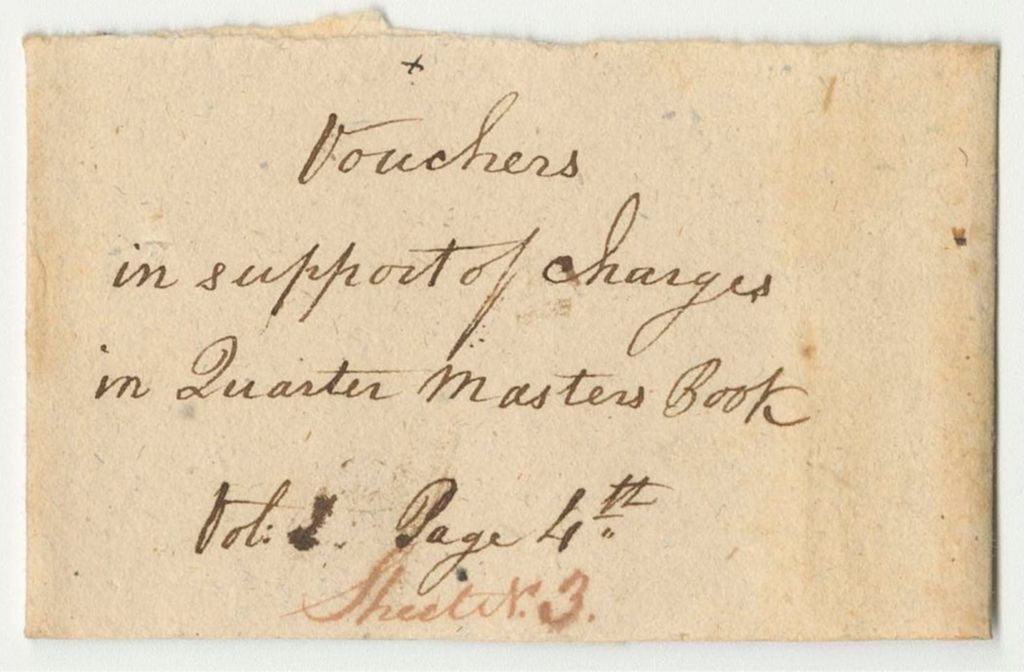 +
Vouchers
in support of charges
in Quarter Masters Book
Vol: 1. Page 4th.
Sheet N. 3.